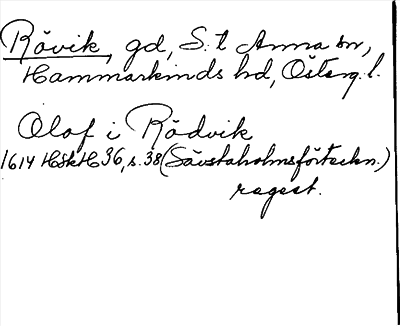 Rövik, gd, S:t Anna sn,
Hammarkinds hd, Österg. l.
Olof i Rödvik
1614 HskH 36, s. 38 (Sävstaholmsförteckn.)
regest.